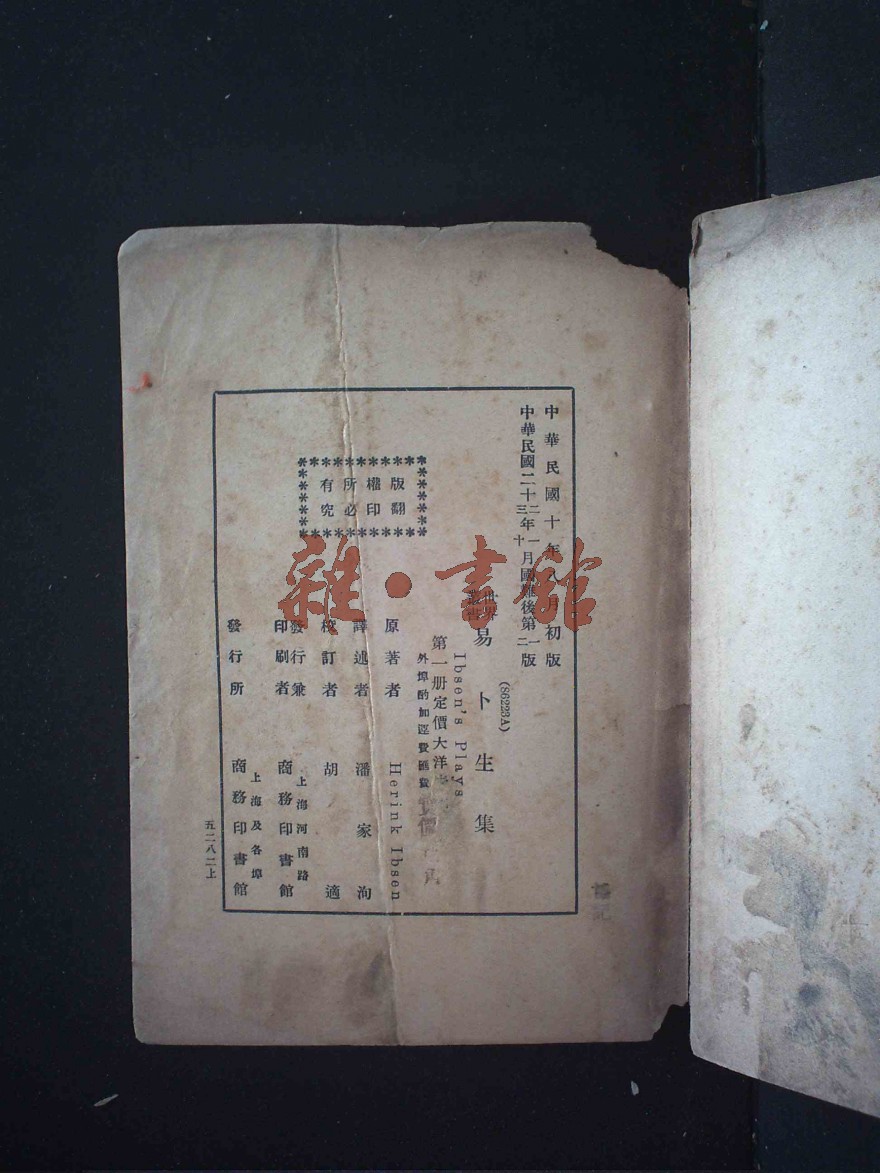 中華民國十年八月初版
中華民國二十二年一月國難後第一版
三 十 二
(86223A)
世界叢書
易卜生集
Ibsen's Plays
第一册定價大洋
外埠酌加運費匯費
原著者 Herink Ibsen
譯述者 潘家洵
校訂者 胡適
發行兼印刷者 上海河南路 商務印書館
發行所 上海及各埠 商務印書館
版權所有
翻印必究
五二八二上
雜·書館